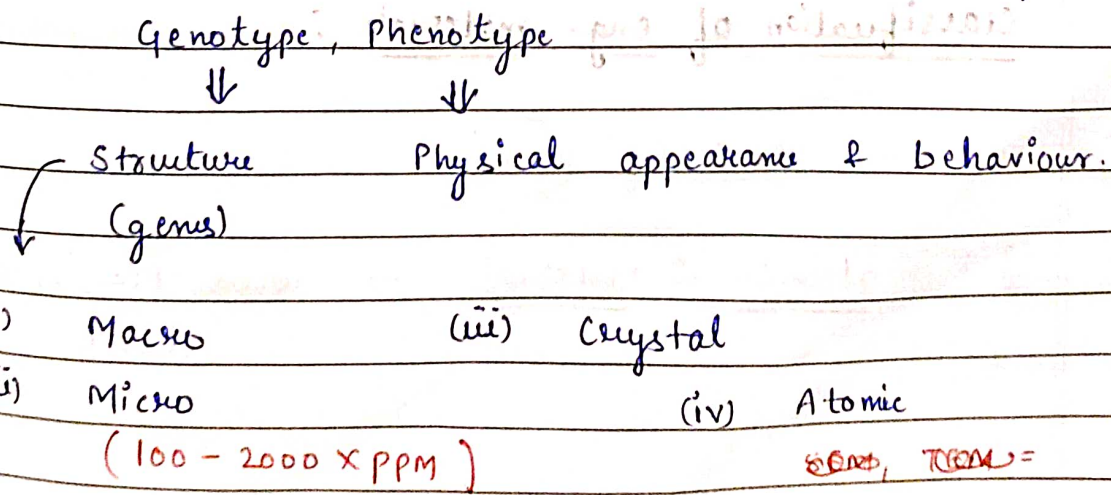 Genotype, Phenotype
⇓ ⇓
Structure Physical appearance & behaviour.
(genes)
) Macro (iii) Crystal
i) Micro (iv) Atomic
(100 - 2000 X PPM)